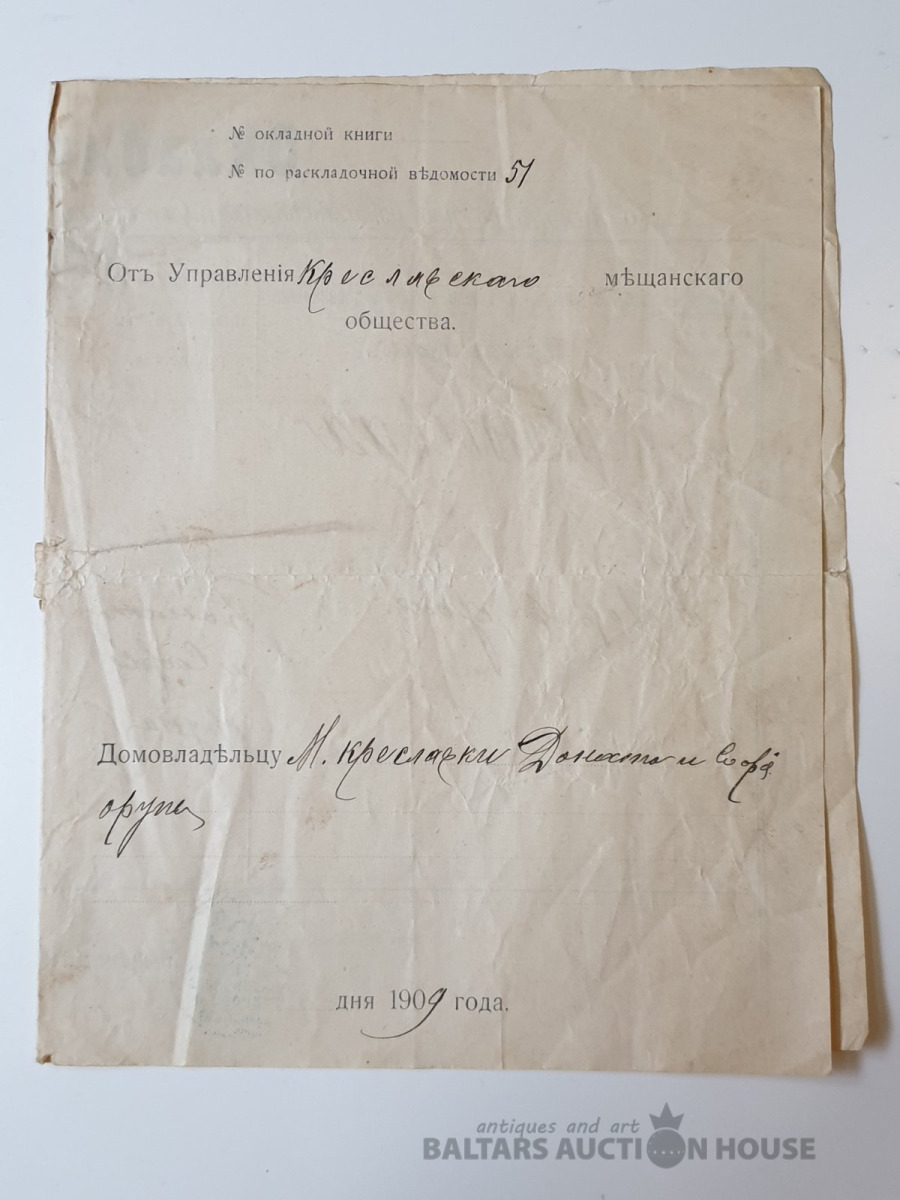 № окладной книги
№ по раскладочной вѣдомости 51
Отъ Управленія Креславскаго мѣщанскаго
общества.
Домовладѣльцу М. Креславки Доната и Софі
дня 1909 года.
antiques and art
BALTARS AUCTION HOUSE